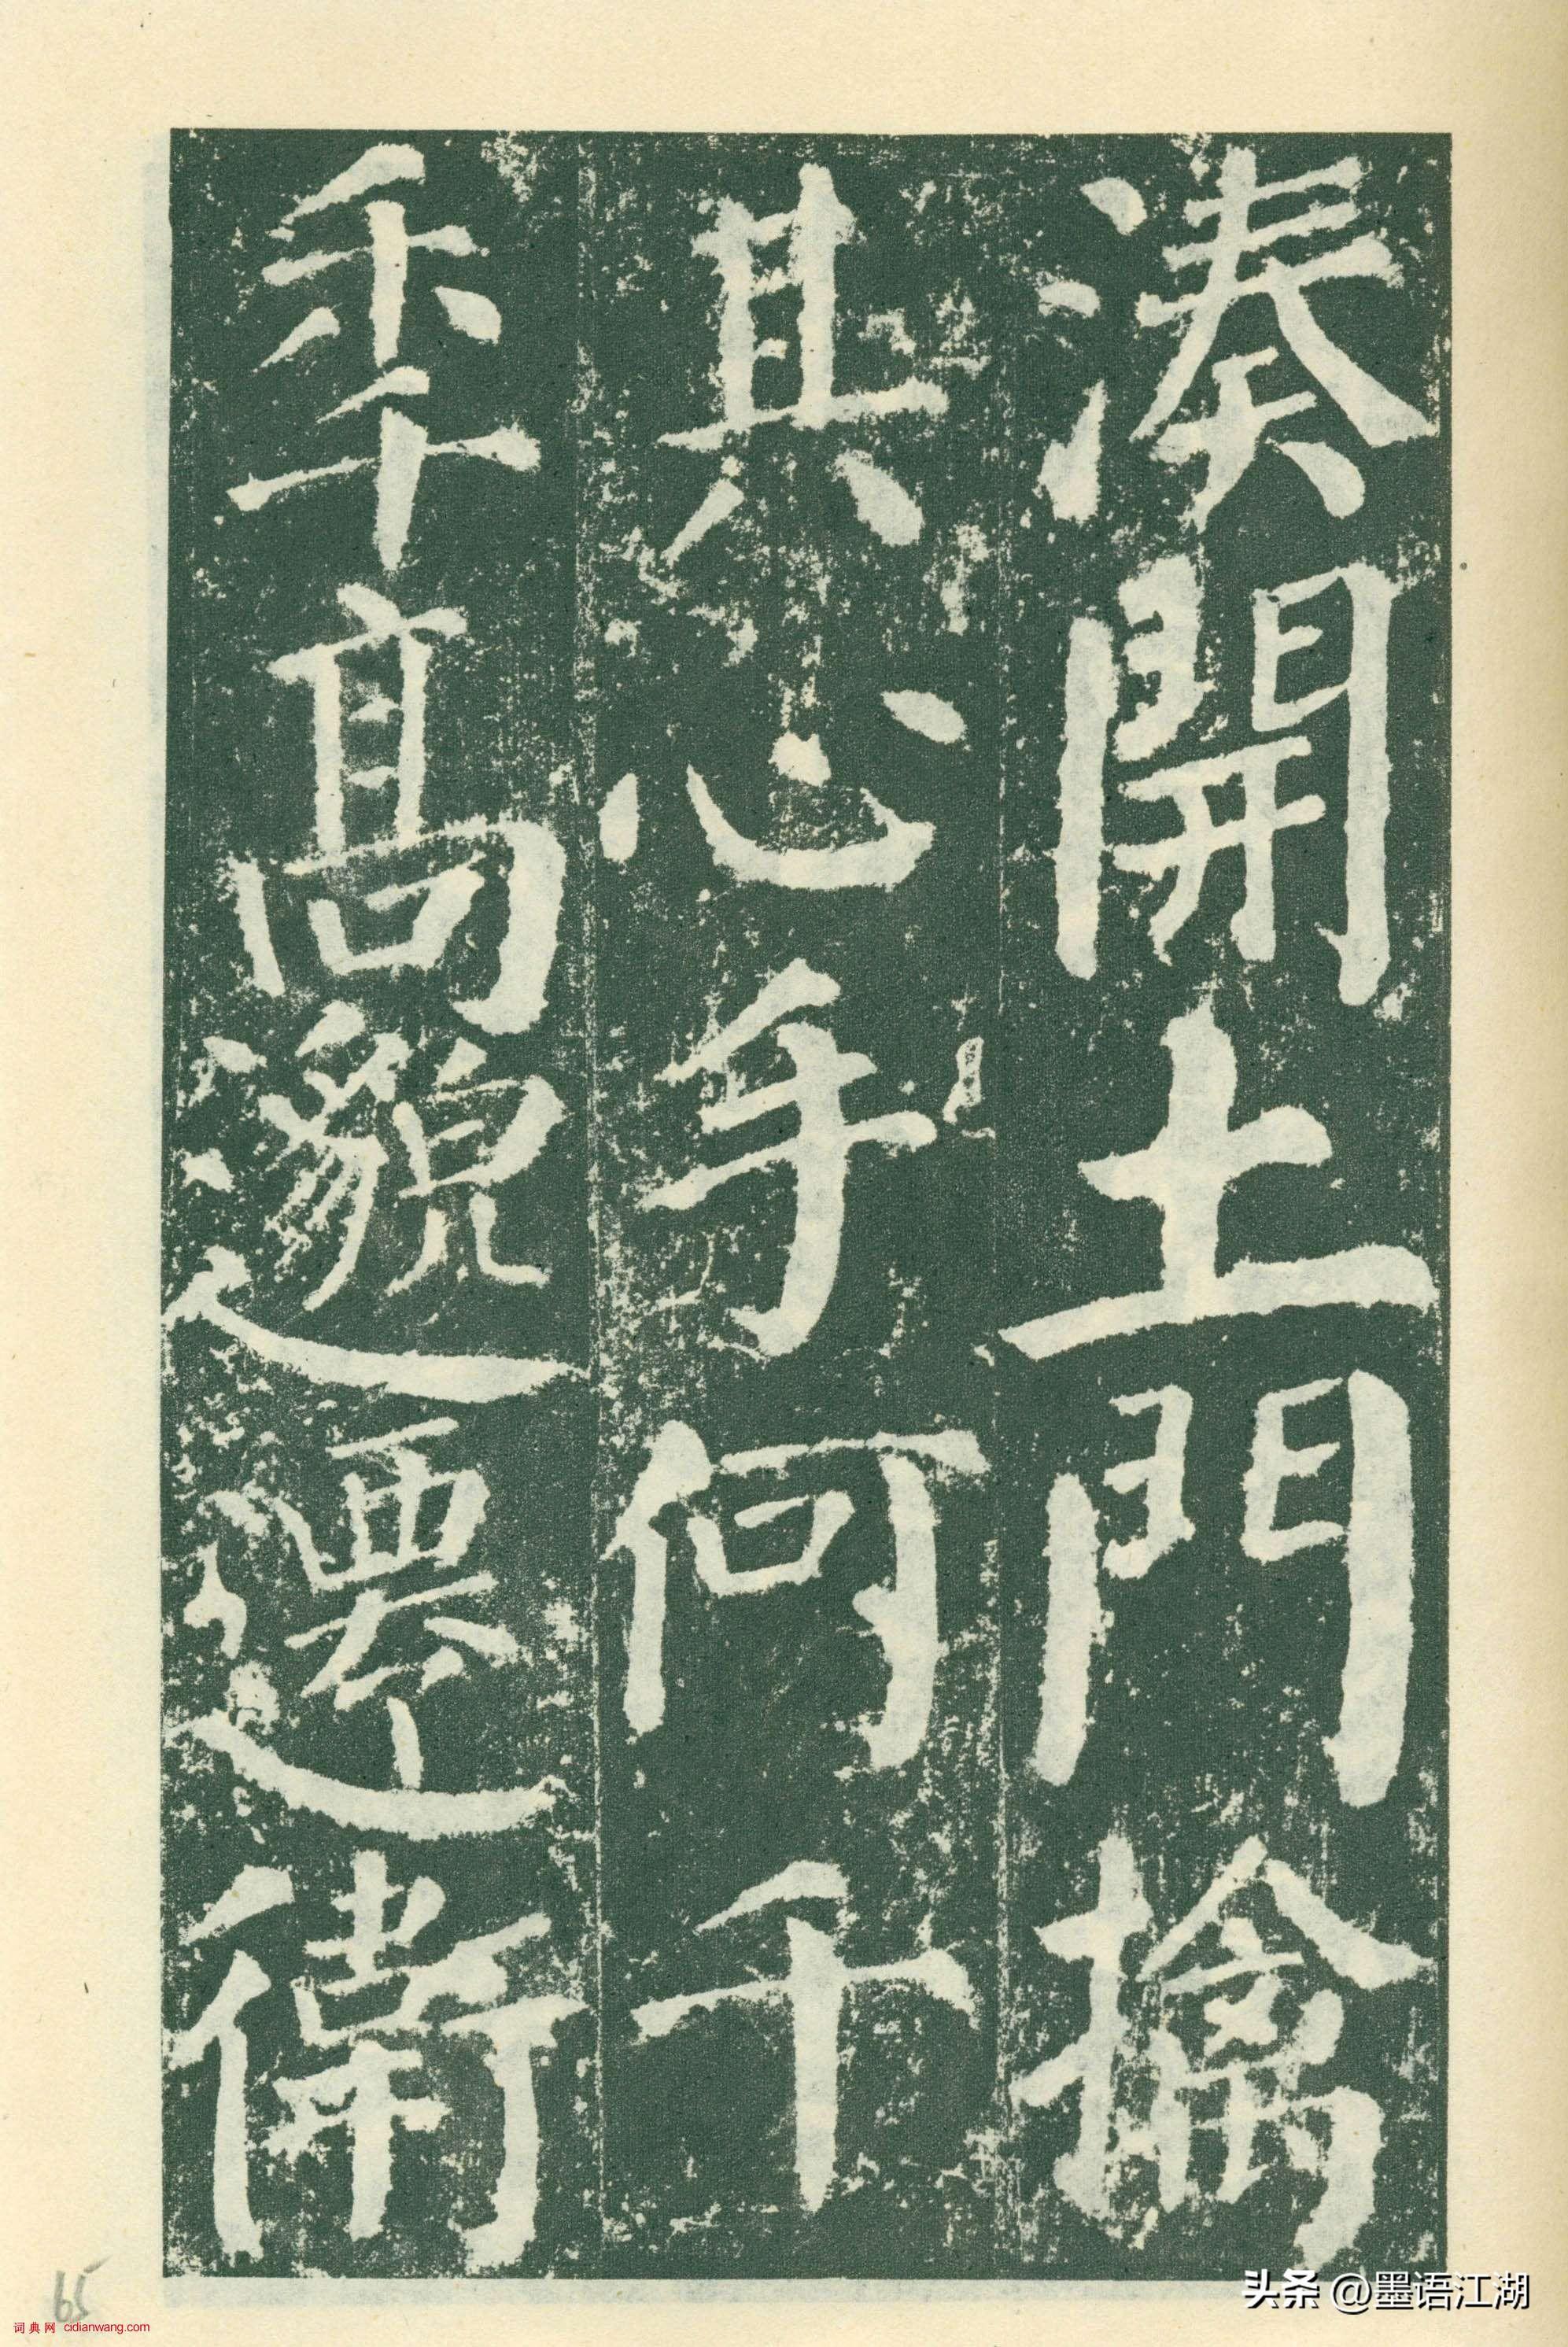 湊開土門擒
其心手何千
秊髙邈遷衛
65
词典网 cidianwang.com
头条 @墨语江湖